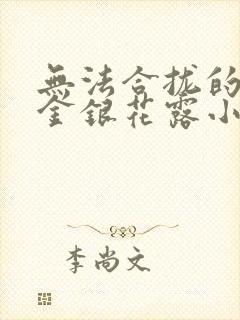 無法合拢的
金銀花露小
李尚文